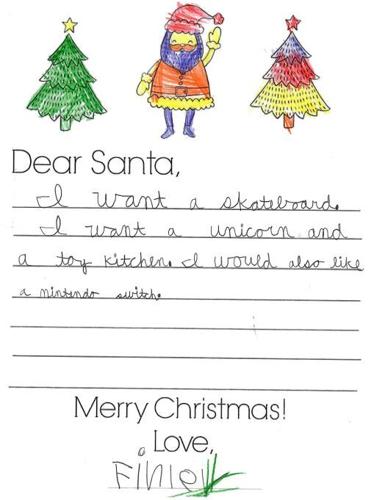 Dear Santa,
I want a skateboard.
I want a unicorn and
a toy kitchen. I would also like
a nintendo switch.
Merry Christmas!
Love,
Finley